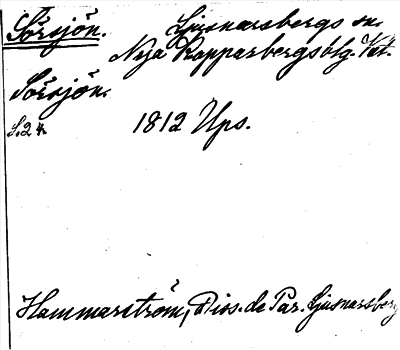 Sörsjön. Ljusnarsbergs sn.
Nya Kopparbergsblg. Vstm.
Sörsjön.
S. 24. 1812 Ups.
Hammarström, Diss. de Par. Ljusnarsberg